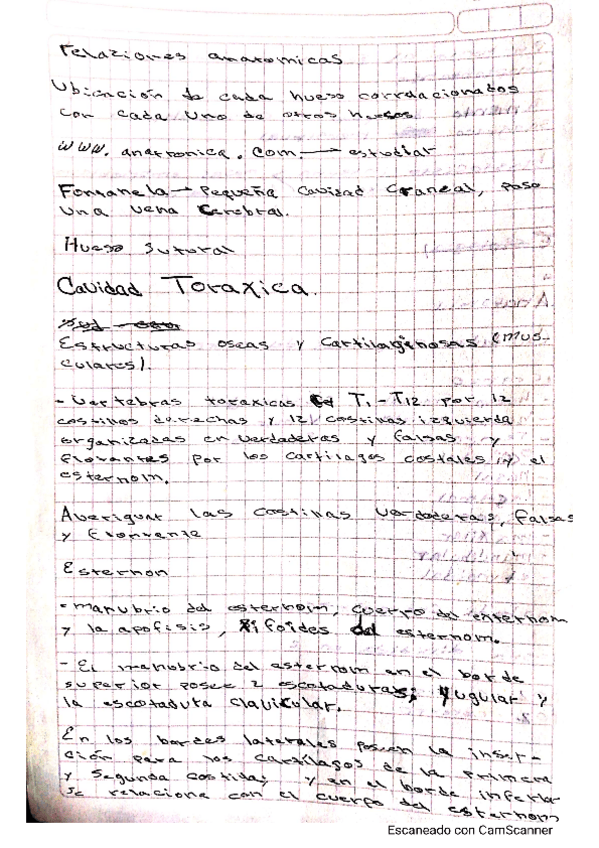 relaziones anatomicas
Ubicación de cada hueso correlacionados
con cada uno de otros huesos.
www. anatronica. com. → estudiar
Fontanela → Pequeña cavidad craneal, pasa
una vena cerebral.
Hueso sutural
Cavidad Toraxica.
Estructuras oseas y cartilaginosas (mus-
culares).
- Vertebras toraxicas T1 - T12 por 12
costillas derechas y 12 costillas izquierda
organizadas en verdaderas y falsas y
flotantes por los cartilagos costales y el
esternom.
Averiguar las costillas verdaderas, falsas
y flontante
Esternon
- manubrio del esternom, cuerpo del enternom
y la apofisis, xifoides del esternom.
- El manubrio del esternom en el borde
superior posee 2 escotaduras; yugular y
la escotadura clavicular.
En los bordes laterales poseen la inser-
ción para los cartílagos de la primera
y segunda costilla, y en el borde inferior
se relaciona con el cuerpo del esternom
Escaneado con CamScanner